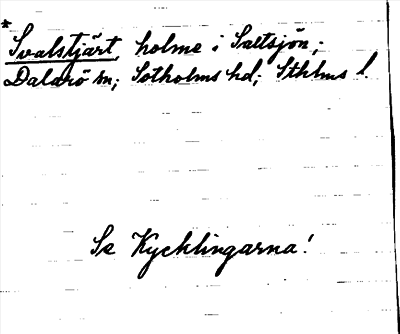 * Svalstjärt, holme i Saltsjön;
Dalarö sn; Sotholms hd; Sthlms l.
Se Kycklingarna!